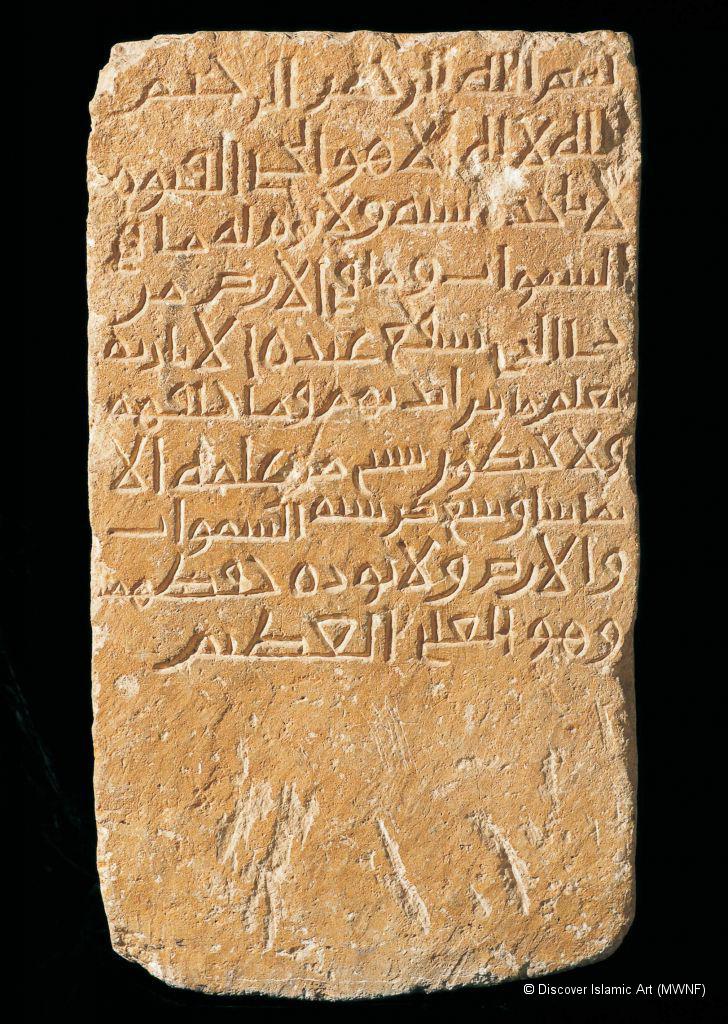 بسم الله الرحمن الرحيم
الله لا اله الا هو الحي القيوم
لا تاخذه سنة ولا نوم له ما في
السموات وما في الارض من
ذا الذي يشفع عنده الا باذنه
يعلم ما بين ايديهم وما خلفهم
ولا يحيطون بشي من علمه الا
بما شا وسع كرسيه السموات
والارض ولا يوده حفظهما
وهو العلي العظيم
© Discover Islamic Art (MWNF)